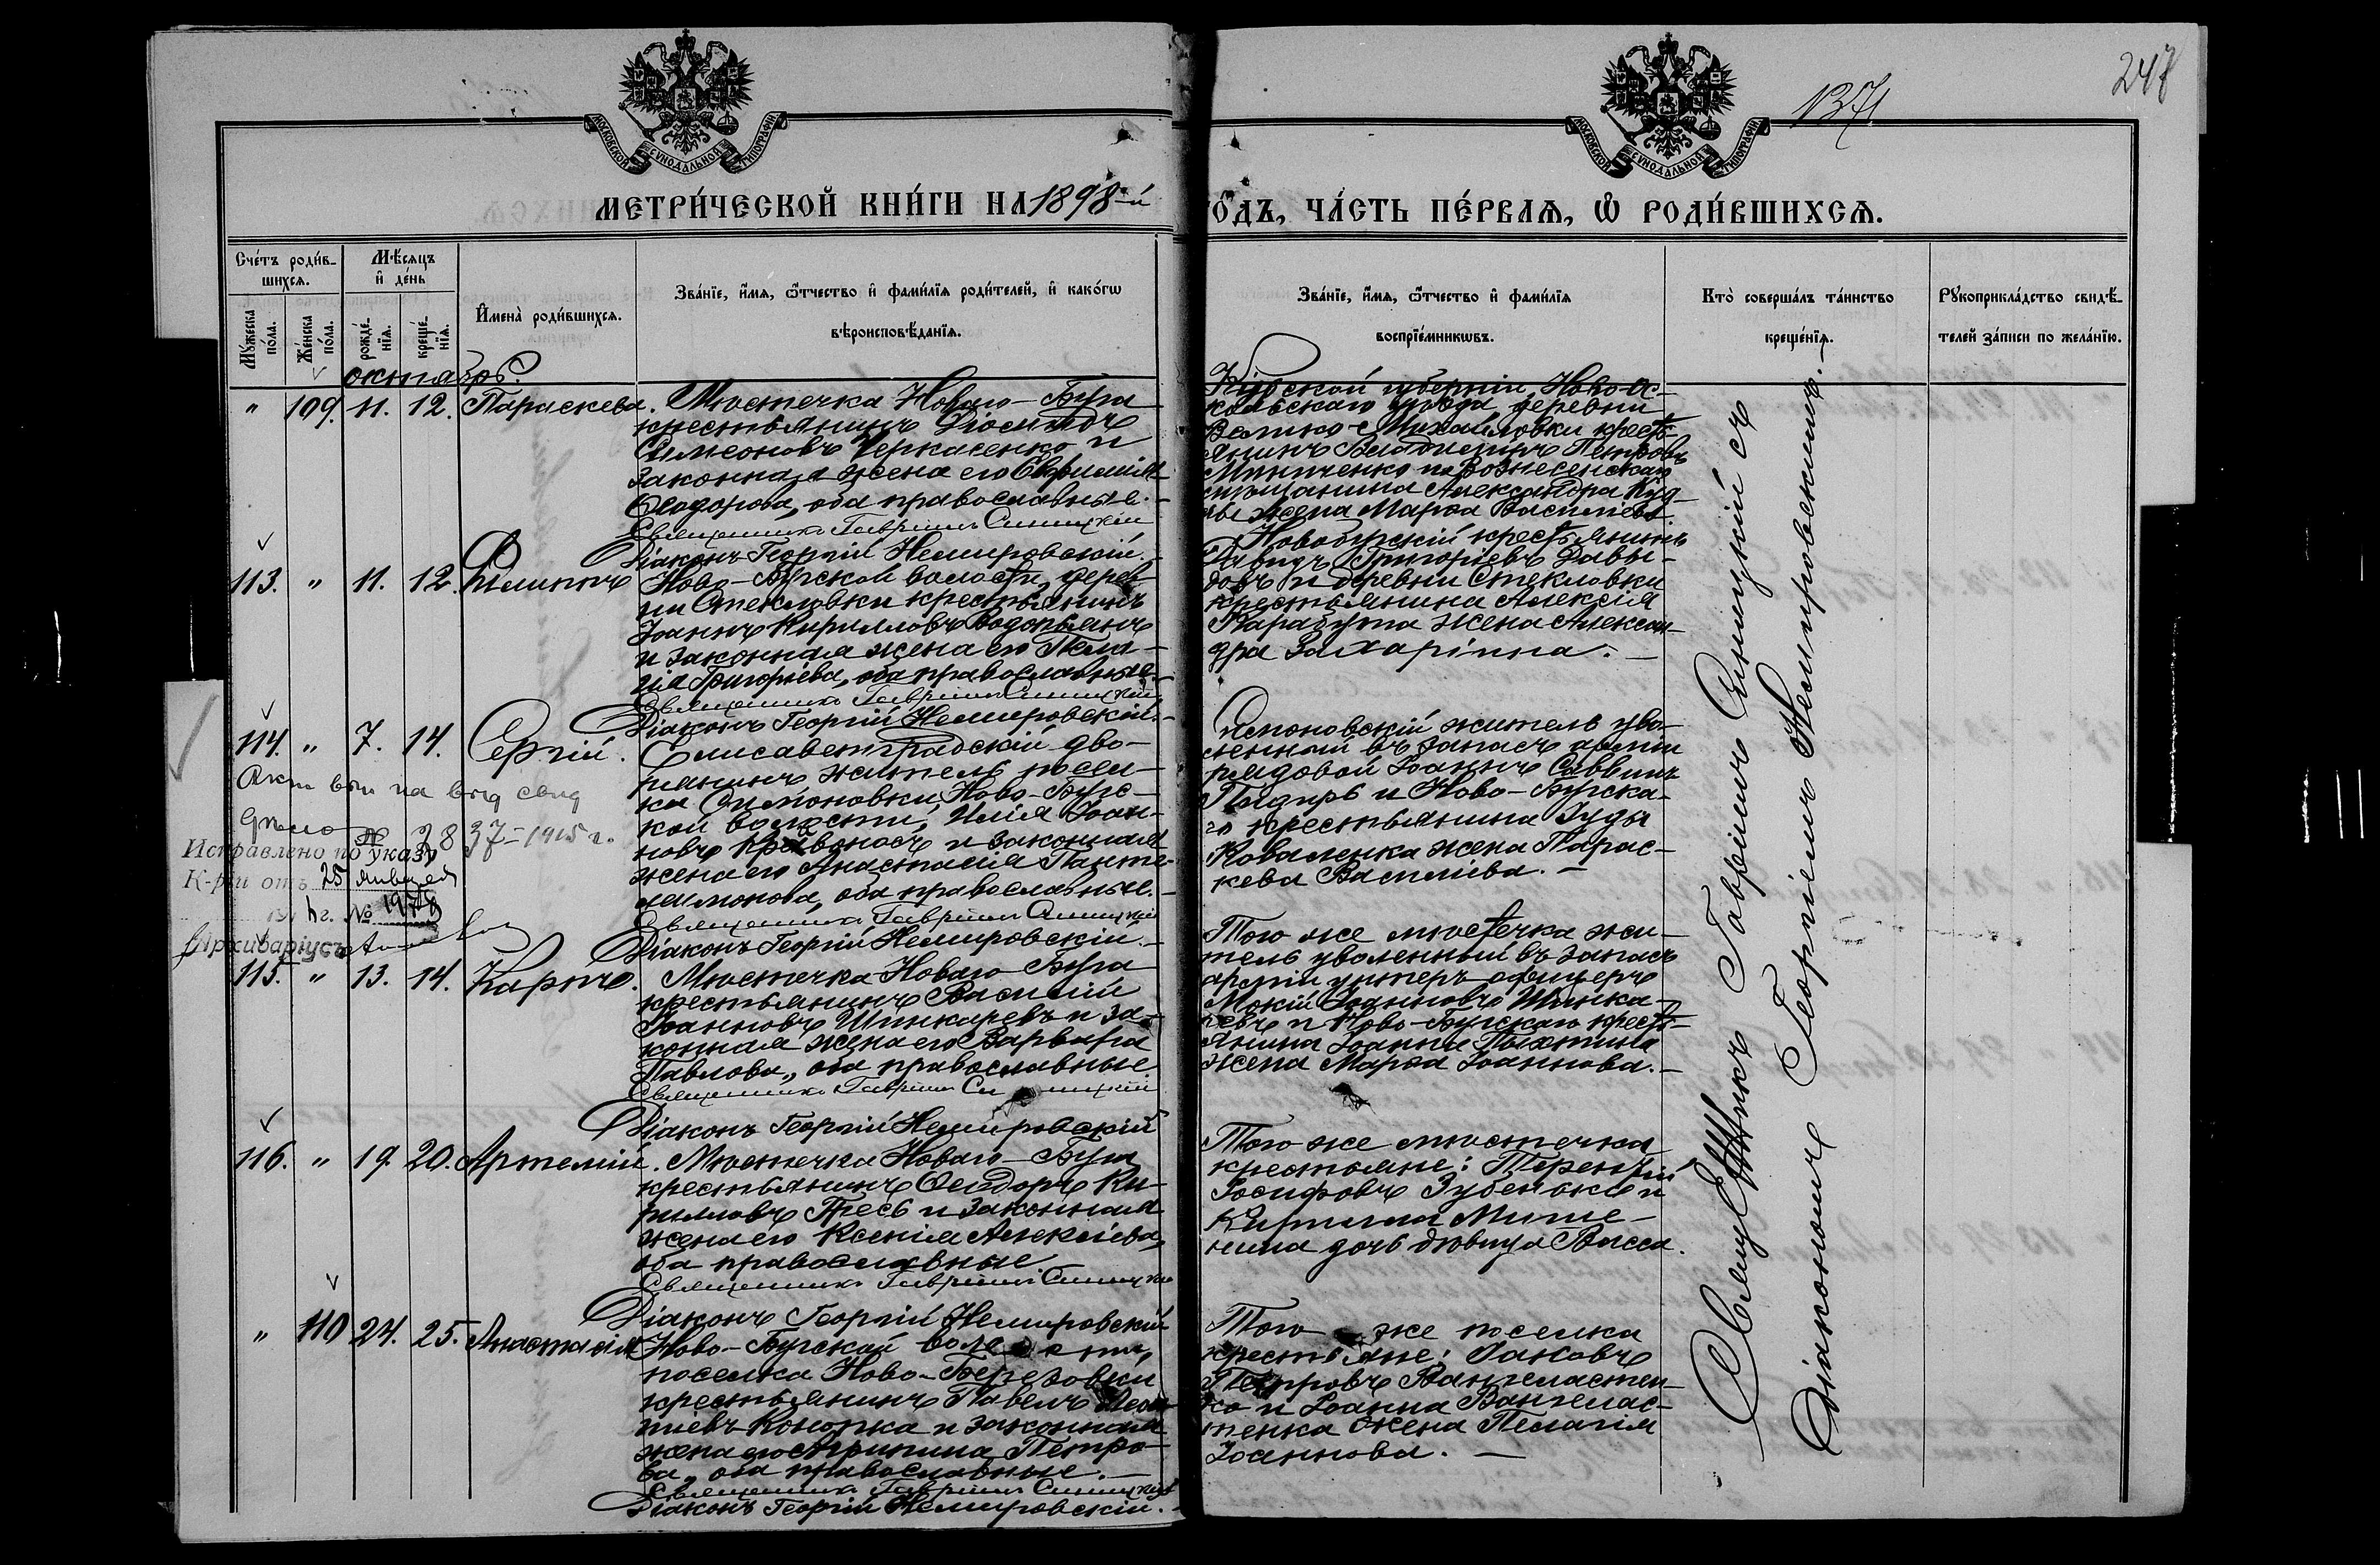 1371
247
МОСКОВСКОЙ СУНОДАЛЬНОЙ ТИПОГРАФІИ
МОСКОВСКОЙ СУНОДАЛЬНОЙ ТИПОГРАФІИ
МЕТРИ́ЧЕСКОЙ КНИ́ГИ НА 1898-й
ГО́ДЪ, ЧА́СТЬ ПЕ́РВАѦ, Ѡ РОДИ́ВШИХСѦ.
Сче́тъ роди́в-
шихсѧ.
Мѣ́сяцъ
и҆ де́нь
Му́жеска по́ла.
Же́нска по́ла.
рожде́-
нїѧ.
креще́-
нїѧ.
И҆мена̀ роди́вшихсѧ.
Зва́нїе, и҆́мѧ, ѻ҆́тчество и҆ фами́лїѧ роди́телей, и҆ како́гѡ
вѣроисповѣ́данїѧ.
Зва́нїе, и҆́мѧ, ѻ҆́тчество и҆ фами́лїѧ
воспрїе́мникѡвъ.
Кто̀ соверша́лъ та́инство
креще́нїѧ.
Рꙋкоприкла́дство свидѣ́-
телей за́писи по жела́нїю.
октябрь.
" 109. 11. 12. Параскева.
Мѣстечка Новаго-Буга
крестьянинъ Діомидъ
Симеоновъ Черкасенко и
законная жена его Евфимія
Ѳеодорова, оба православные.-
Священникъ Гавріилъ Синицкій
Діаконъ Георгій Немировскій.
Курской губерніи, Ново-Ос-
кольскаго уѣзда деревни
Велико-Михайловки кресть-
янинъ Владиміръ Петровъ
и Вознесенскаго
мѣщанина Александра
жена Марѳа Василіева.
113. " 11. 12. Филиппъ
Ново-Бугской волости, дерев-
ни Стекловки крестьянинъ
Іоаннъ Кирилловъ Водопьянъ
и законная жена его Пела-
гія Григорьева, оба православные.
Священникъ Гавріилъ Синицкій
Діаконъ Георгій Немировскій.-
Новобугскій крестьянинъ
Давидъ Григорьевъ Давы-
довъ и деревни Стекловки
крестьянина Алексія
Карабута жена Алексан-
дра Захаріина. -
114. " 7. 14. Сергій.
Елисаветградскій дво-
рянинъ житель посел-
ка Симоновки, Ново-Бугс-
кой волости, Илія Іоан-
новъ Кривоносъ и законная
жена его Анастасія Панте-
леимонова, оба православные.-
Священникъ Гавріилъ Синицкій
Діаконъ Георгій Немировскій.-
Симоновскій житель уво-
ленный въ запасъ арміи
рядовой Іоаннъ Саввинъ
и Ново-Бугска-
го крестьянина Іуды
Коваленка жена Парас-
кева Василіева. -
№ 2837-1915 г.
Исправлено по указу
К-ріи отъ 25 января
г. №
Архиваріусъ
115. " 13. 14. Карпъ.
Мѣстечка Новаго-Буга
крестьянинъ Василій
Іоанновъ Шинкаревъ и за-
конная жена его Варвара
Павлова, оба православные
Священникъ Гавріилъ Синицкій
Діаконъ Георгій Немировскій
Того же мѣстечка жи-
тель уволенный въ запасъ
арміи унтеръ-офицеръ
Мокій Іоанновъ Шинка-
ревъ и Ново-Бугскаго кресть-
янина Іоанна
жена Марѳа Іоаннова.-
116. " 19. 20. Артемій.
Мѣстечка Новаго-Буга
крестьянинъ Ѳеодоръ Ки-
рилловъ Гресь и законная
жена его Ксенія Алексіева,
оба православные
Священникъ Гавріилъ Синицкій
Діаконъ Георгій Немировскій
Того же мѣстечка
крестьяне: Терентій
Іосифовъ Зубенько и
Кирилла
дочь дѣвица Васса.
" 110 24. 25. Анастасія
Ново-Бугской волости,
поселка Ново-Березовки
крестьянинъ Павелъ
Конопка и законная
жена его Агрипина Петро-
ва, оба православные. -
Священникъ Гавріилъ Синицкій
Діаконъ Георгій Немировскій.
Того же поселка
крестьяне: Іаковъ
Петровъ Вангеластен-
ко и Іоанна Вангелас-
тенка жена Пелагія
Іоаннова. -
Священникъ Гавріилъ Синицкій съ
Діакономъ Георгіемъ Немировскимъ.-